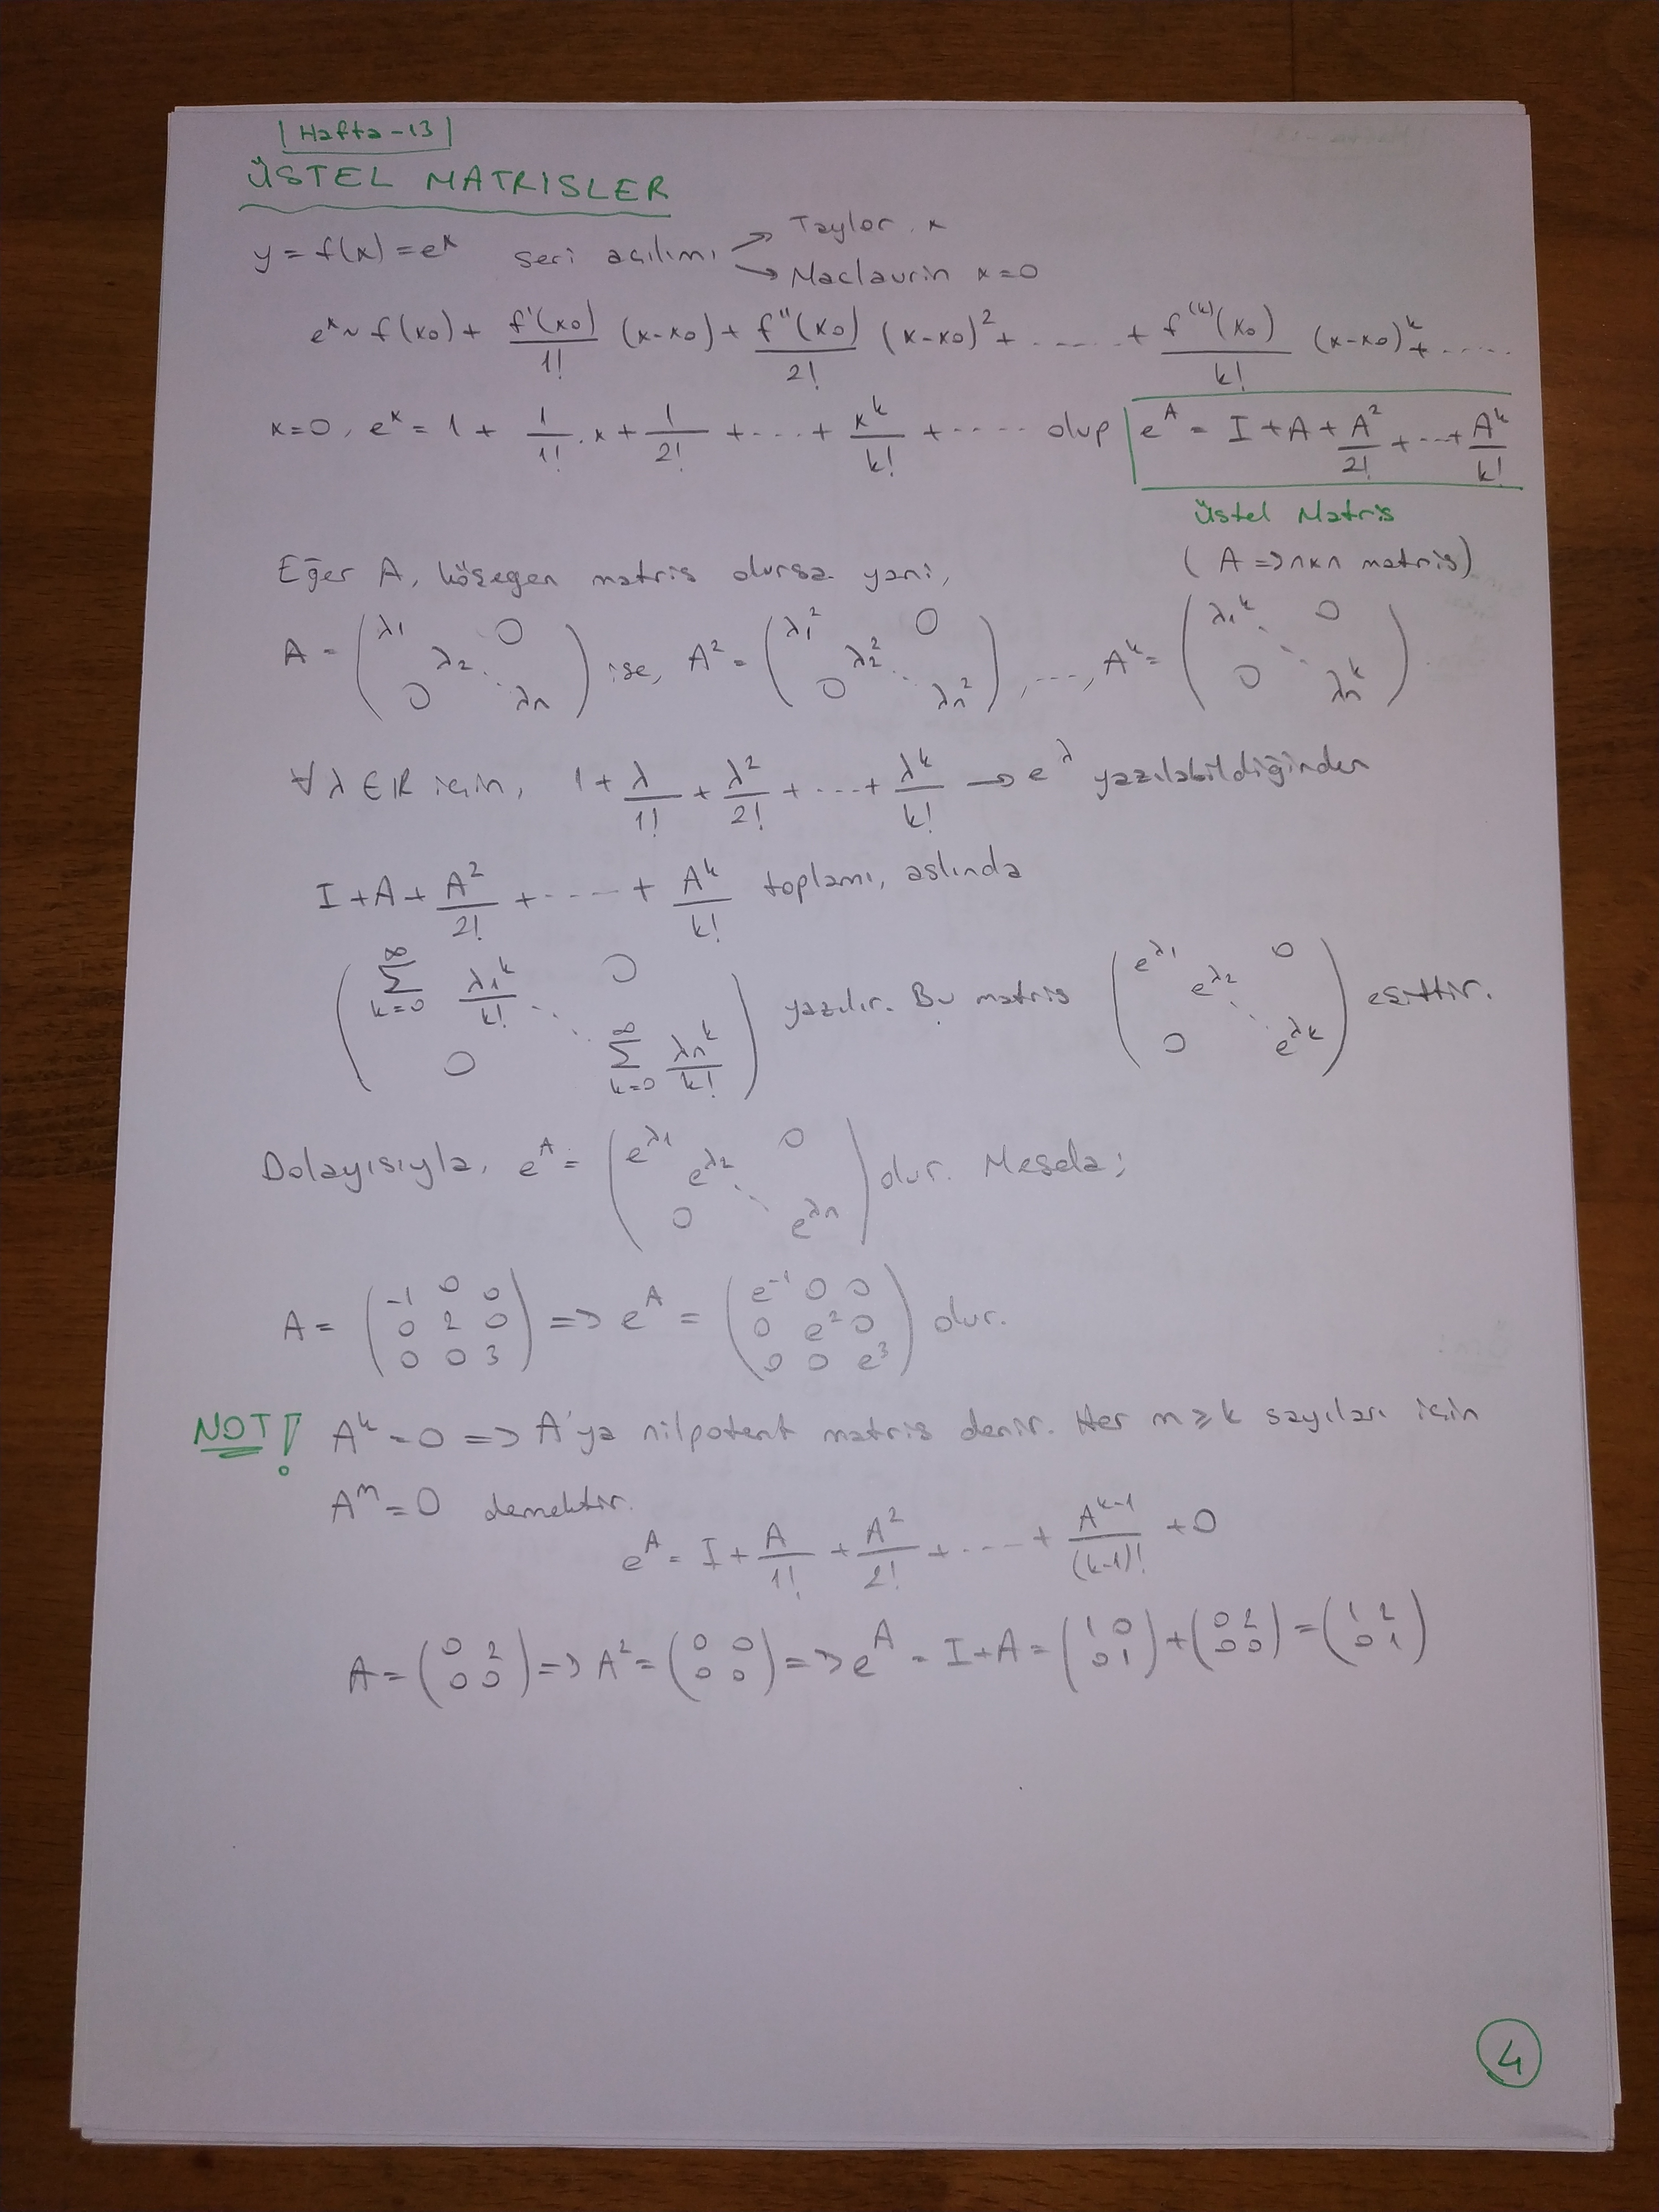 Hafta-13
ÜSTEL MATRİSLER
y = f(x) = e^x seri açılımı → Taylor x
→ Maclaurin x=0
e^x ~ f(x0) + f'(x0)/1! (x-x0) + f''(x0)/2! (x-x0)^2 + ..... + f^(k)(x0)/k! (x-x0)^k + .....
x=0, e^x = 1 + 1/1! . x + 1/2! + .... + x^k/k! + ..... olup e^A = I + A + A^2/2! + ... + A^k/k!
Üstel Matris
(A => nxn matris)
Eğer A, köşegen matris olursa yani,
A = (λ1 λ2 ... λn, 0 0) ise, A^2 = (λ1^2 λ2^2 ... λn^2, 0 0), ..., A^k = (λ1^k ... λn^k, 0 0)
∀ λ ∈ IR için, 1 + λ/1! + λ^2/2! + .... + λ^k/k! → e^λ yazılabildiğinden
I + A + A^2/2! + ..... + A^k/k! toplamı, aslında
(∑ k=0 ∞ λ1^k/k! ... ∑ k=0 ∞ λn^k/k!, 0 0) yazılır. Bu matris (e^λ1 e^λ2 ... e^λk, 0 0) eşittir.
Dolayısıyla, e^A = (e^λ1 e^λ2 ... e^λn, 0 0) dır. Mesela;
A = (-1 0 0; 0 2 0; 0 0 3) => e^A = (e^-1 0 0; 0 e^2 0; 0 0 e^3) olur.
NOT: A^k = 0 => A'ya nilpotent matris denir. Her m ≥ k sayıları için
A^m = 0 demektir.
e^A = I + A/1! + A^2/2! + ..... + A^k-1/(k-1)! + 0
A = (0 2; 0 0) => A^2 = (0 0; 0 0) => e^A = I + A = (1 0; 0 1) + (0 2; 0 0) = (1 2; 0 1)
4